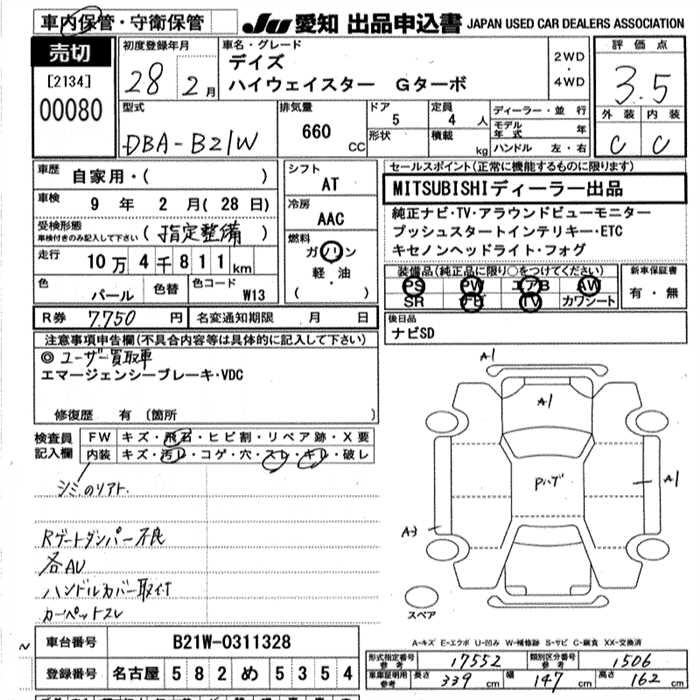 車内保管・守衛保管
JU 愛知 出品申込書 JAPAN USED CAR DEALERS ASSOCIATION
売切
[2134]
00080
初度登録年月
28年 2月
車名・グレード
デイズ
ハイウェイスター Gターボ
2WD
・
4WD
評価点
3.5
外装 内装
C C
型式
DBA-B21W
排気量
660 CC
ドア
5
形状
定員
4 人
積載
kg
ディーラー・並行
モデル年式 年
ハンドル 左・右
車歴
自家用・( )
車検
9 年 2 月 (28 日)
受検形態
車検付きのみ記入して下さい
(指定整備)
走行
10万4千811km
色
パール
色替
色コード
W13
シフト
AT
冷房
AAC
燃料
ガソリン
軽・油
( )
セールスポイント(正常に機能するものに限ります)
MITSUBISHIディーラー出品
純正ナビ・TV・アラウンドビューモニター
プッシュスタートインテリキー・ETC
キセノンヘッドライト・フォグ
装備品(純正品に限り○をつけてください)
PS PW エアB AW
SR ナビ TV カワシート
新車保証書
有・無
R券 7.750 円
名変通知期限 月 日
後日品
ナビSD
注意事項申告欄(不具合内容等は具体的に記入して下さい)
◎ユーザー買取車
エマージェンシーブレーキ・VDC
修復歴 有 (箇所 )
検査員
記入欄
FW キズ・飛石・ヒビ割・リペア跡・X要
内装 キズ・汚レ・コゲ・穴・スレ・キレ・破レ
シミのソアト.
Rゲートダンパー不良
各AU
ハンドルカバー取付
カーペットスレ
A-1
A1
Pハゲ
A1
A-3
スペア
A-キズ E-エクボ U-凹み W-補修跡 S-サビ C-腐食 XX-交換済
車台番号 B21W-0311328
登録番号 名古屋 582 め 5354
形式指定番号
参考
17552
類別区分番号
参考
1506
車庫証明用
参考
長さ 339 cm
幅 147 cm
高さ 162 cm